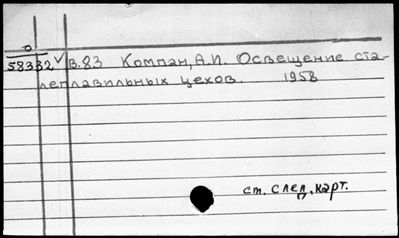 58332 В.83 Компан, А.И. Освещение ста-
леплавильных цехов. 1958
ст. след. карт.